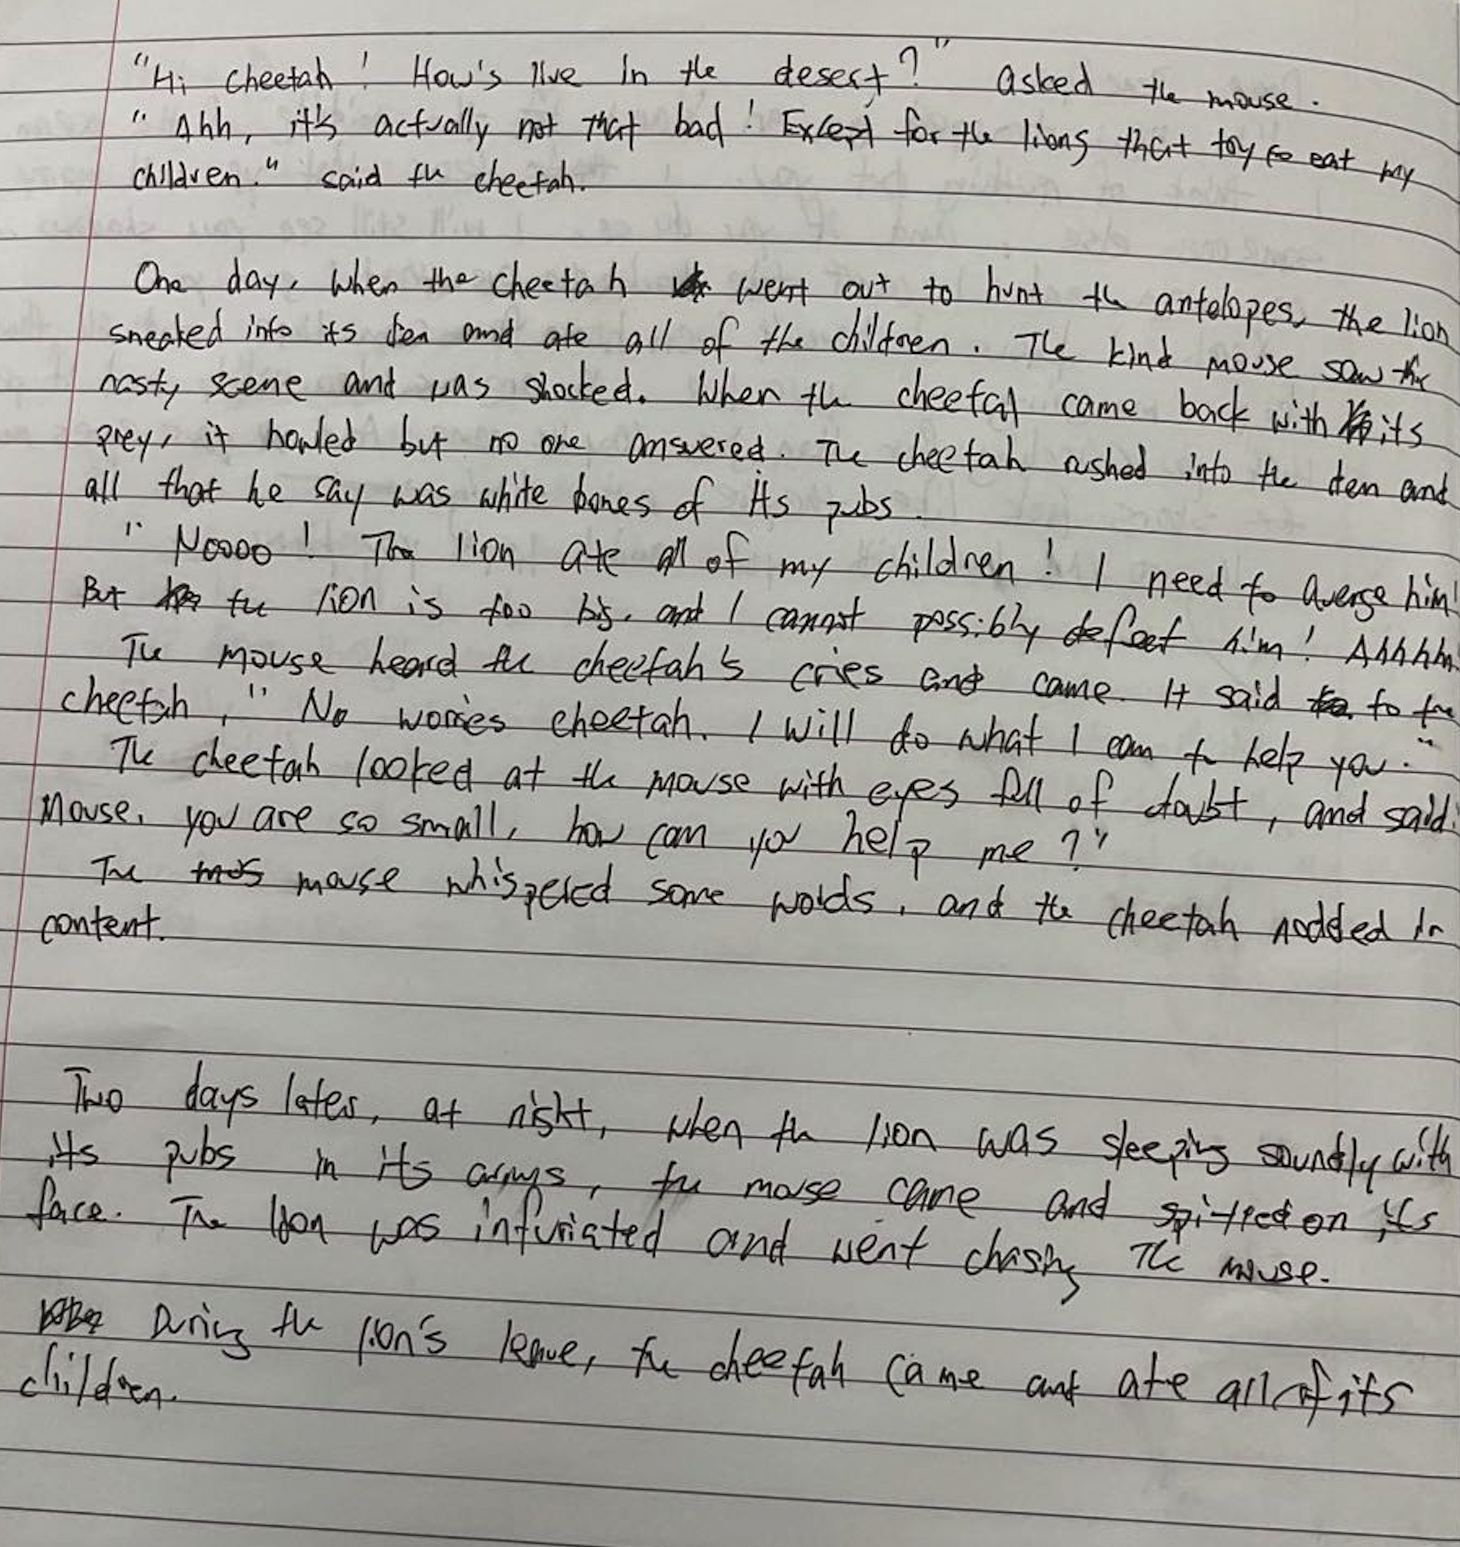 "Hi cheetah! How's live in the desert?" asked the mouse.
"Ahh, it's actually not that bad! Except for the lions that try to eat my
children." said the cheetah.
One day, when the cheetah went out to hunt the antelopes, the lion
sneaked into its den and ate all of the children. The kind mouse saw the
nasty scene and was shocked. When the cheetah came back with its
prey, it howled but no one answered. The cheetah rushed into the den and
all that he say was white bones of its pubs.
"Noooo! The lion ate all of my children! I need to averge him!
But the lion is too big, and I cannot possibly defeat him! Ahhhh
The mouse heard the cheetah's cries and came. It said to the
cheetah, "No worries cheetah. I will do what I can to help you."
The cheetah looked at the mouse with eyes full of doubt, and said:
Mouse, you are so small, how can you help me?"
The mouse whispered some words, and the cheetah nodded in
content.
Two days later, at night, when the lion was sleeping soundly with
its pubs in its arms, the mouse came and spitted on its
face. The lion was infuriated and went chasing The mouse.
During the lion's leave, the cheetah came and ate all of its
children.